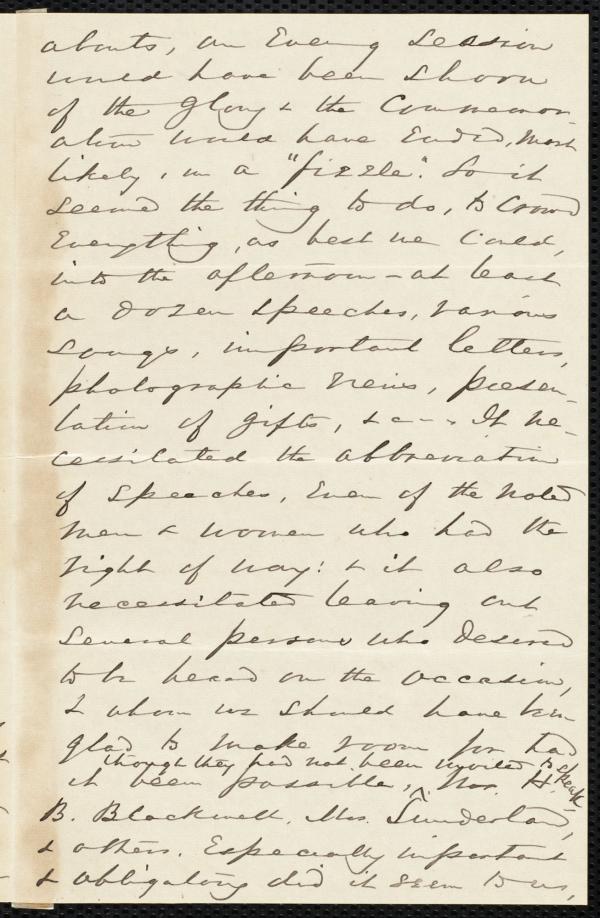 abouts, an Evening Session
would have been shorn
of the Glory & the Commemor-
ation would have Ended, most
likely, in a "fizzle". So it
seemed the thing to do, to Crowd
Everything, as best we Could,
into the afternoon - at least
a dozen speeches, various
songs, important letters,
photographic views, presen-
tation of gifts, &c - - It ne-
cessitated the abbreviation
of speeches, Even of the noted
men & women who had the
right of way: & it also
necessitated leaving out
several persons who desired
to be heard on the occasion,
& whom we should have been
glad to make room for had
though they had not been invited to speak
it been possible, ^ H.
B. Blackwell, Mrs. Sunderland,
& others. Especially important
& obligatory did it seem to us,